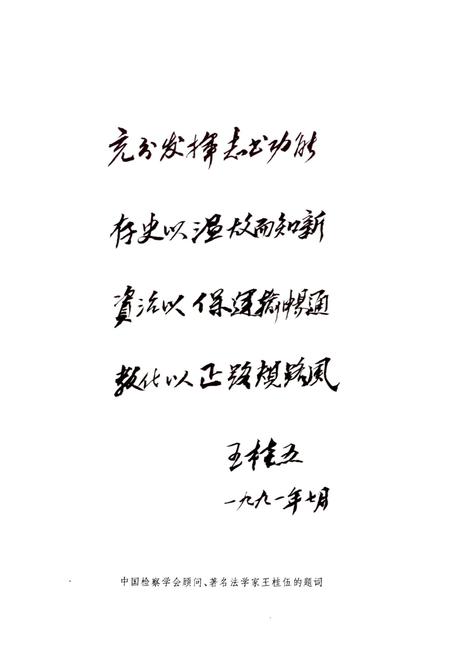 充分发挥志书功能
存史以温故而知新
資治以保運输暢通
教化以正路規路風
王桂五
一九九一年七月
中国检察学会顾问、著名法学家王桂伍的题词